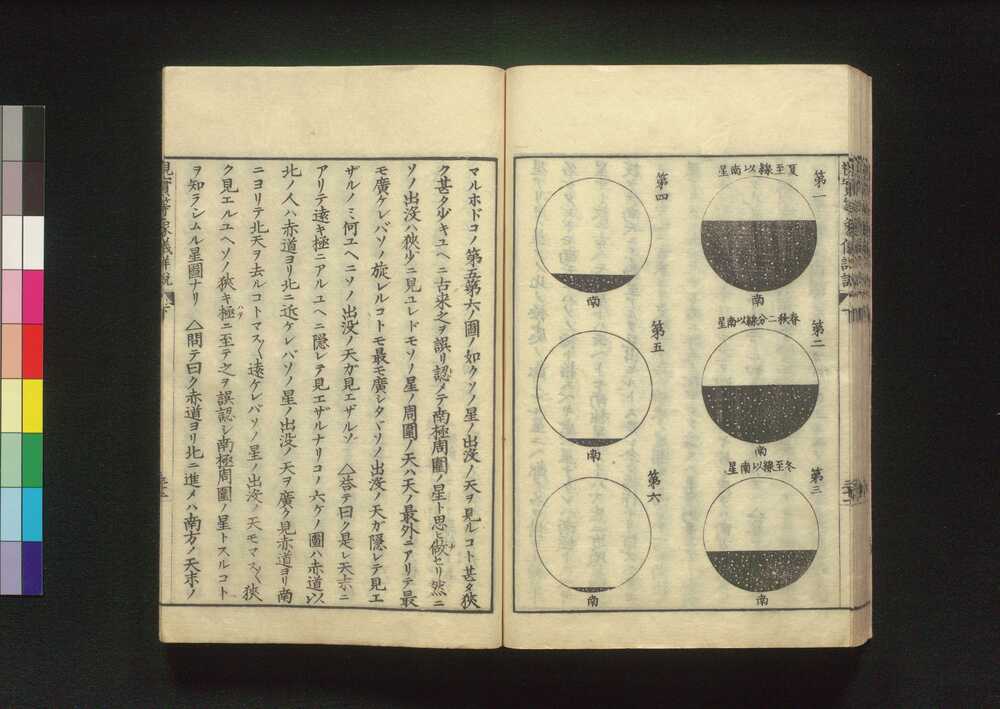 第一
夏至線以南星
南
第二
春秋二分線以南星
南
第三
冬至線以南星
南
第四
南
第五
南
第六
南
マルホドコノ第五第六ノ圖ノ如クソノ星ノ出沒ノ天ヲ見ルコト甚タ狹
ク甚タ少キユヘニ古来之ヲ誤リ認メテ南極周圍ノ星ト思ヒ做ヒリ然ニ
ソノ出沒ハ狹少ニ見ユレドモソノ星ノ周圍ノ天ハ天ノ最外ニアリテ最
モ廣ケレバソノ旋レルコトモ最モ廣シタヾソノ出沒ノ天ガ隱レテ見エ
ザルノミ何ユヘニソノ出没ノ天ガ見エザルゾ △答テ曰ク是レ天末ニ
アリテ遠キ極ニアルユヘニ隱レテ見エザルナリコノ六ケノ圖ハ赤道以
北ノ人ハ赤道ヨリ北ニ近ケレバソノ星ノ出沒ノ天ヲ廣ク見赤道ヨリ南
ニヨリテ北天ヲ去ルコトマス〱遠ケレバソノ星ノ出沒ノ天モマス〱狹
ク見エルユヘソノ狹キ極ハテニ至テ之ヲ誤認シ南極周圍ノ星トスルコト
ヲ知ランムル星圖ナリ △問テ曰ク赤道ヨリ北ニ進メハ南方ノ天末ノ
視實等象儀詳説